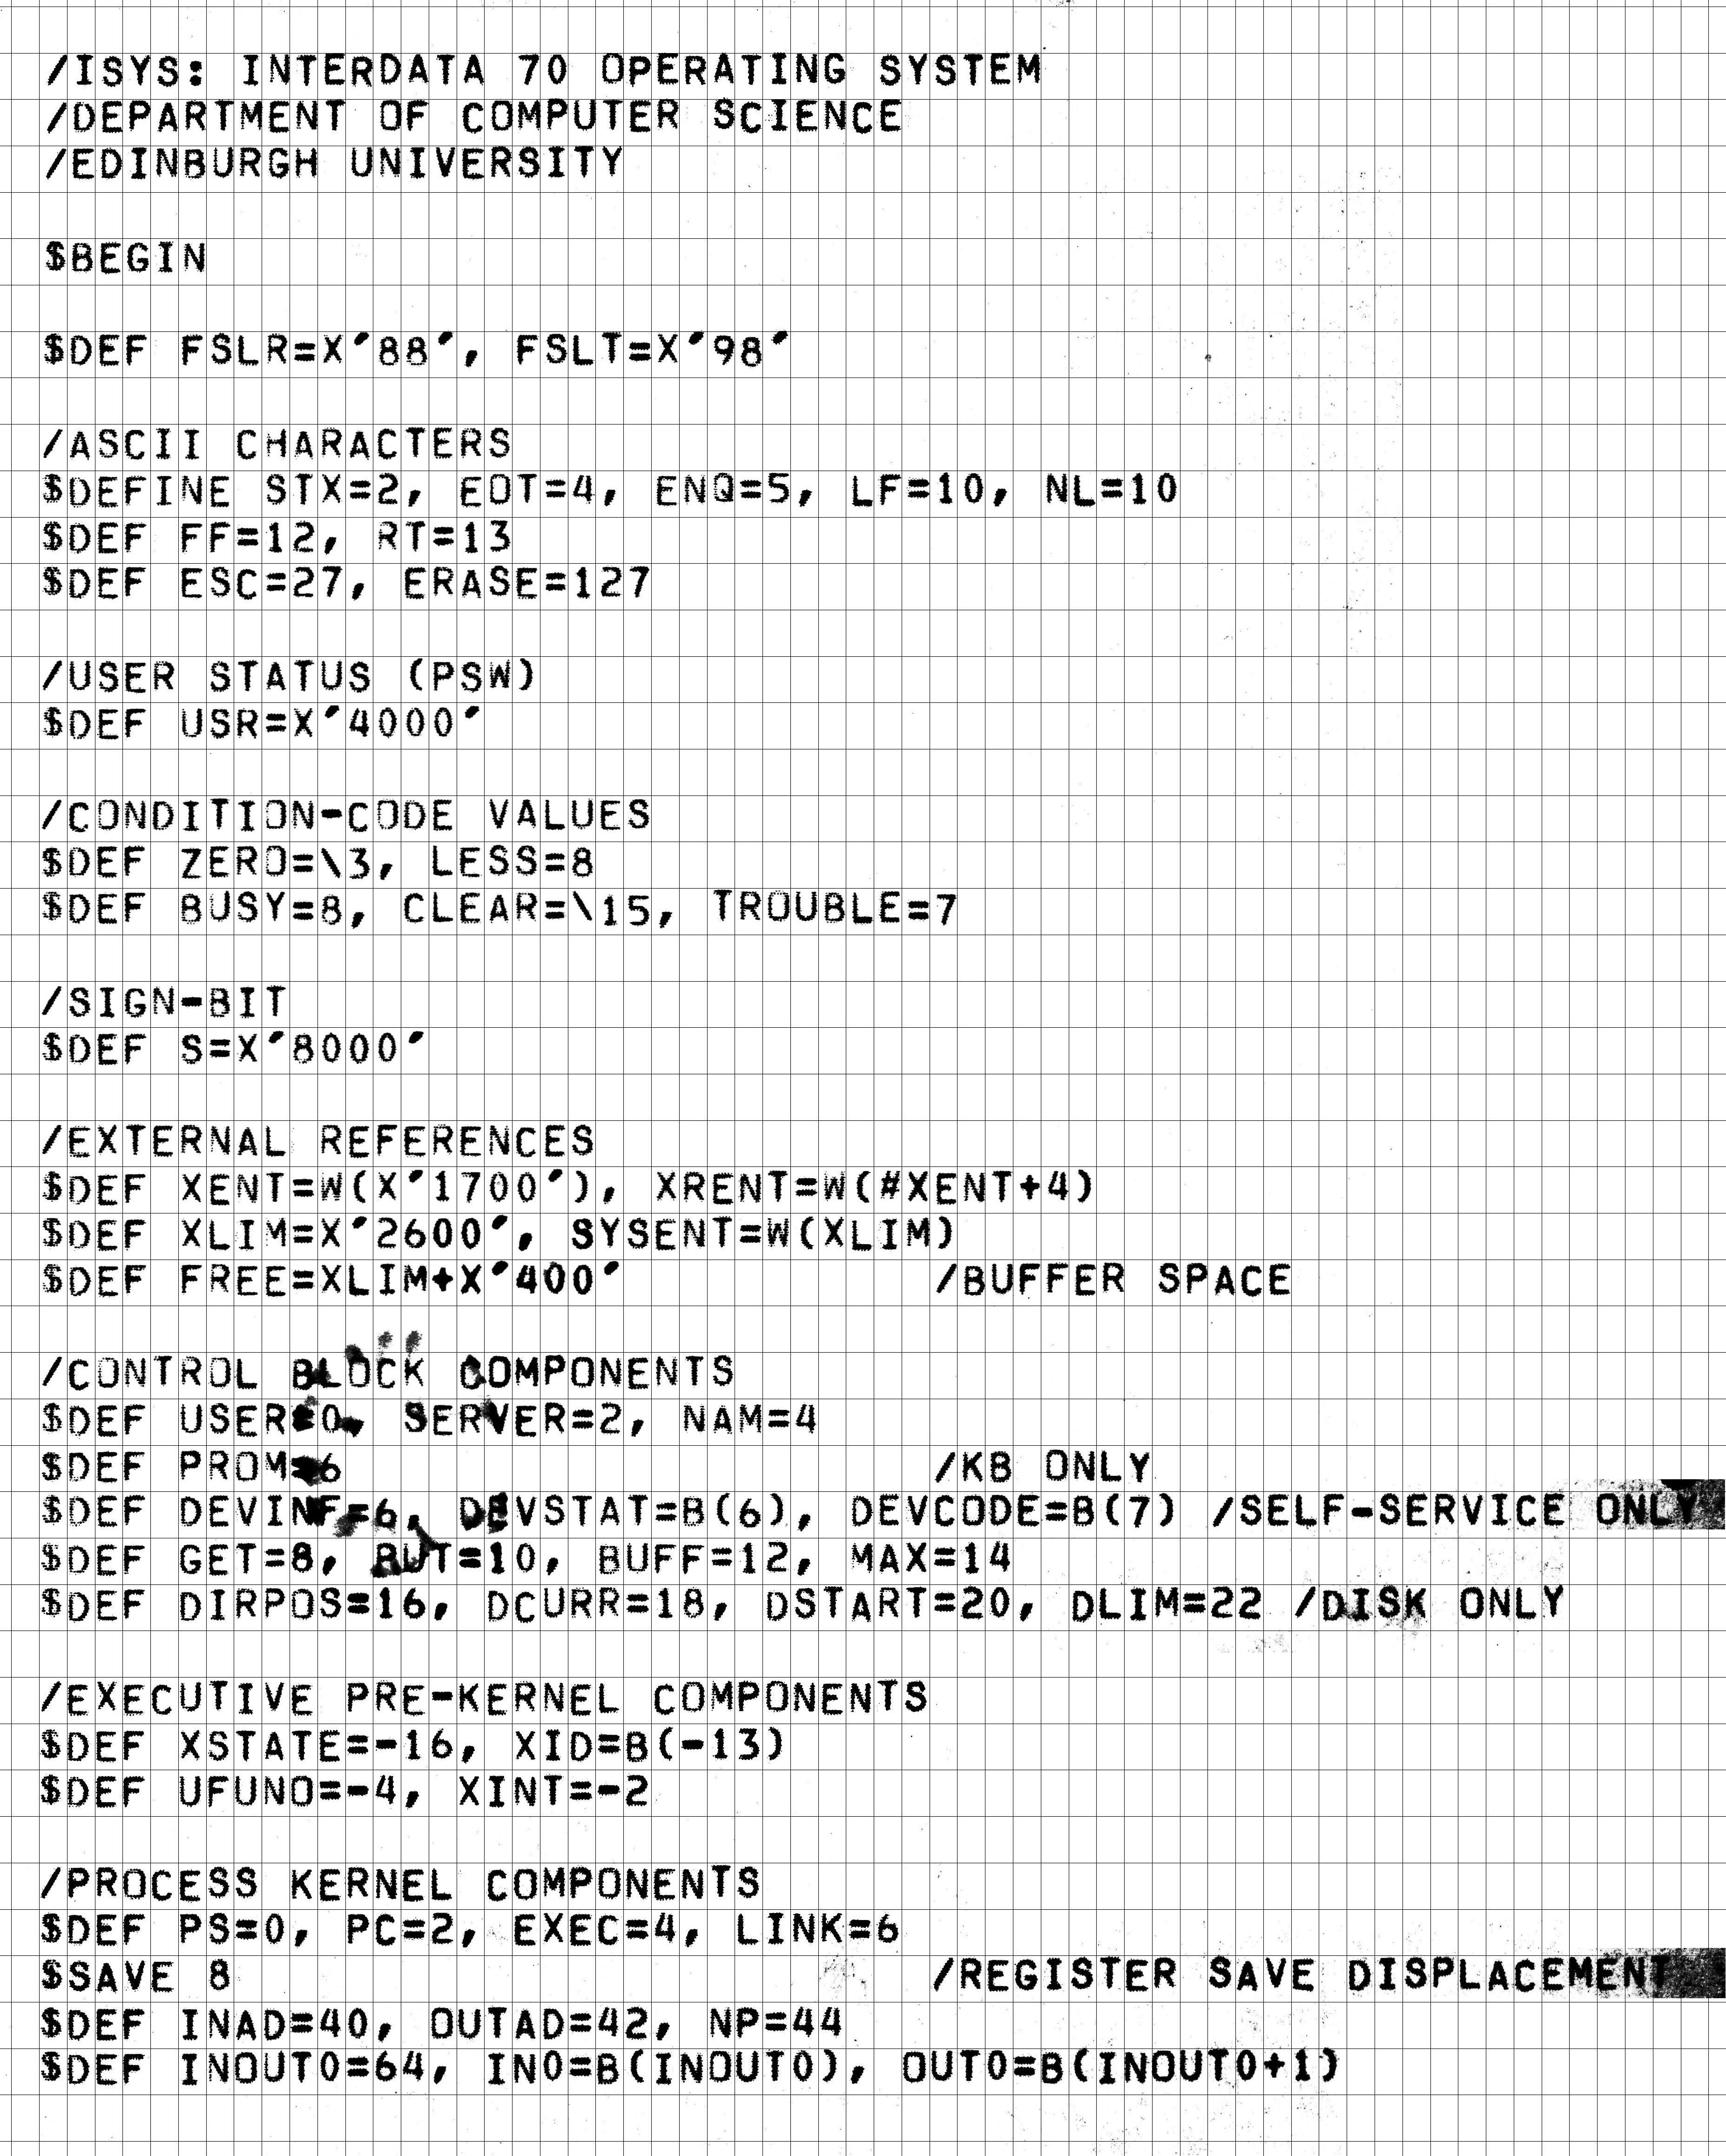 /ISYS: INTERDATA 70 OPERATING SYSTEM
/DEPARTMENT OF COMPUTER SCIENCE
/EDINBURGH UNIVERSITY
$BEGIN
$DEF FSLR=X'88', FSLT=X'98'
/ASCII CHARACTERS
$DEFINE STX=2, EOT=4, ENQ=5, LF=10, NL=10
$DEF FF=12, RT=13
$DEF ESC=27, ERASE=127
/USER STATUS (PSW)
$DEF USR=X'4000'
/CONDITION-CODE VALUES
$DEF ZERO=\3, LESS=8
$DEF BUSY=8, CLEAR=\15, TROUBLE=7
/SIGN-BIT
$DEF S=X'8000'
/EXTERNAL REFERENCES
$DEF XENT=W(X'1700'), XRENT=W(#XENT+4)
$DEF XLIM=X'2600', SYSENT=W(XLIM)
$DEF FREE=XLIM+X'400' /BUFFER SPACE
/CONTROL BLOCK COMPONENTS
$DEF USER=0, SERVER=2, NAM=4
$DEF PROM=6 /KB ONLY
$DEF DEVINF=6, DEVSTAT=B(6), DEVCODE=B(7) /SELF-SERVICE ONLY
$DEF GET=8, =10, BUFF=12, MAX=14
$DEF DIRPOS=16, DCURR=18, DSTART=20, DLIM=22 /DISK ONLY
/EXECUTIVE PRE-KERNEL COMPONENTS
$DEF XSTATE=-16, XID=B(-13)
$DEF UFUNO=-4, XINT=-2
/PROCESS KERNEL COMPONENTS
$DEF PS=0, PC=2, EXEC=4, LINK=6
$SAVE 8 /REGISTER SAVE DISPLACEMENT
$DEF INAD=40, OUTAD=42, NP=44
$DEF INOUT0=64, IN0=B(INOUT0), OUT0=B(INOUT0+1)